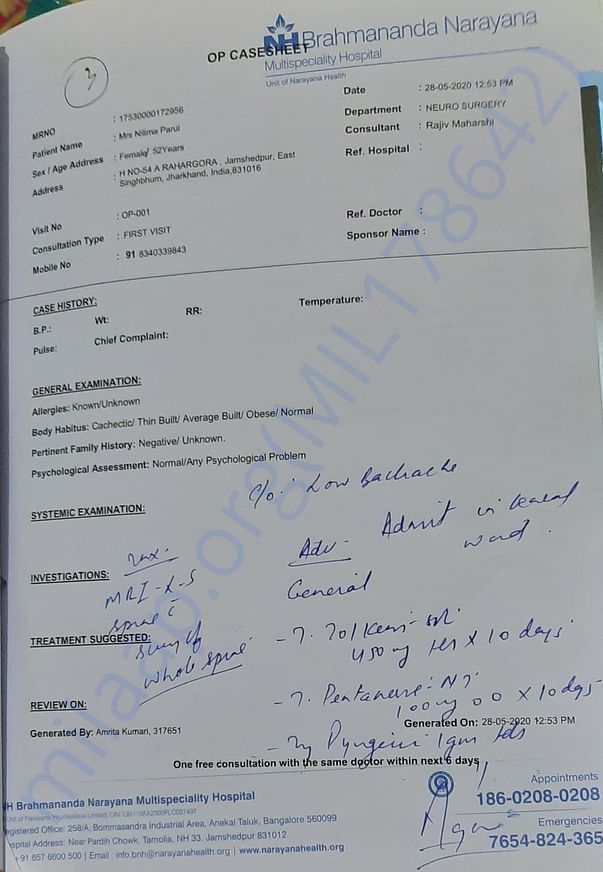 3
NH Brahmananda Narayana
Multispeciality Hospital
Unit of Narayana Health
OP CASESHEET
MRNO : 17530000172956
Patient Name : Mrs Nilima Parui
Sex / Age Address : Female/ 52Years
Address : H NO-54 A RAHARGORA , Jamshedpur, East
Singhbhum, Jharkhand, India,831016
Visit No : OP-001
Consultation Type : FIRST VISIT
Mobile No : 91 8340339843
Date : 28-05-2020 12:53 PM
Department : NEURO SURGERY
Consultant : Rajiv Maharshi
Ref. Hospital :
Ref. Doctor :
Sponsor Name :
CASE HISTORY:
B.P.: Wt: RR: Temperature:
Pulse: Chief Complaint:
GENERAL EXAMINATION:
Allergies: Known/Unknown
Body Habitus: Cachectic/ Thin Built/ Average Built/ Obese/ Normal
Pertinent Family History: Negative/ Unknown.
Psychological Assessment: Normal/Any Psychological Problem
C/o: Low Backache
SYSTEMIC EXAMINATION:
Adv- Admit in General
ward.
General
INVESTIGATIONS:
MRI-L-S
spine
TREATMENT SUGGESTED:
whole spine
450mg x 10 days
100mg 0 0 x 10 days
REVIEW ON:
Generated By: Amrita Kumari, 317651
Generated On: 28-05-2020 12:53 PM
1gm tds
One free consultation with the same doctor within next 6 days
NH Brahmananda Narayana Multispeciality Hospital
Registered Office: 258/A, Bommasandra Industrial Area, Anekal Taluk, Bangalore 560099
Hospital Address: Near Pardih Chowk, Tamolia, NH 33, Jamshedpur 831012
+91 657 6600 500 | Email : info.bnh@narayanahealth.org | www.narayanahealth.org
Appointments
186-0208-0208
Emergencies
7654-824-365
milaap.org(MIL178642)